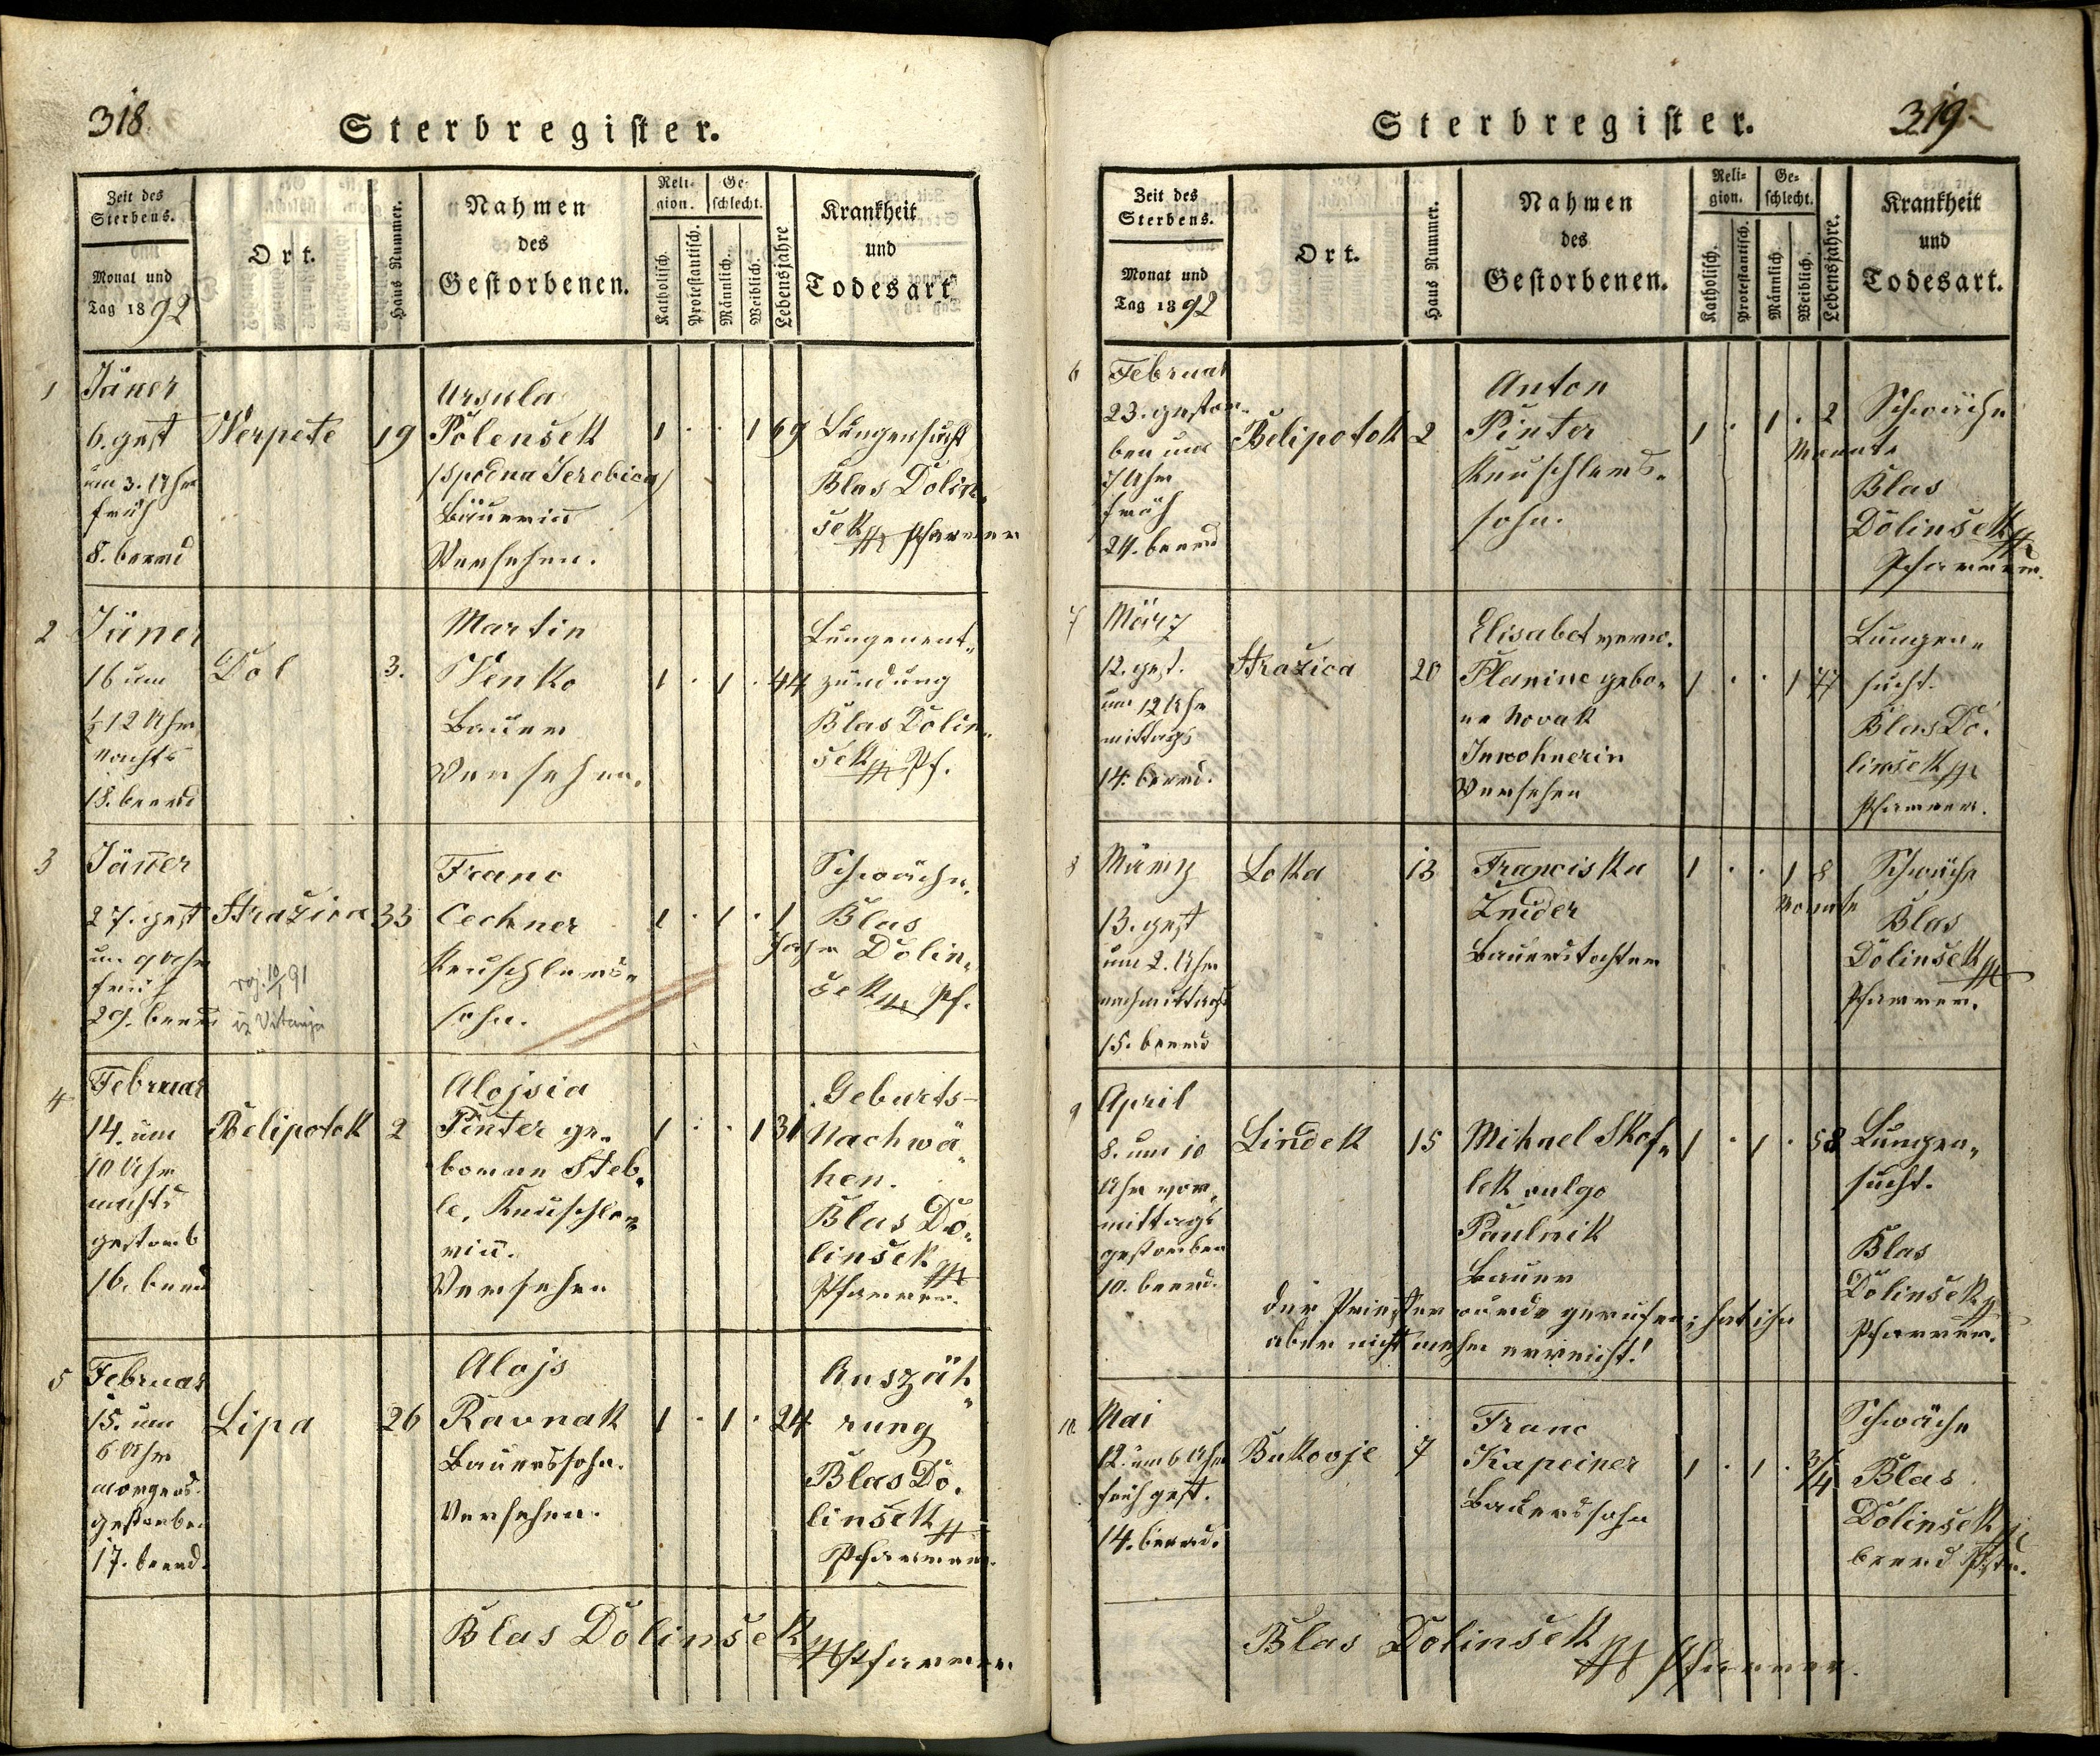 318.
Sterbregister.
Zeit des Sterbens.
Monat und Tag 1892
Ort.
Haus Nummer.
Nahmen des Gestorbenen.
Religion.
Katholisch.
Protestantisch.
Geschlecht.
Männlich.
Weiblich.
Lebensjahre
Krankheit und Todesart
1 Jäner
6. gest
um 3. Uhr
früh
8. beerd
Werpete 19
Ursula
Polenšek
(Spodna Jerebica)
Bäuerin
Versehen.
1 . . 1 69
Lungensucht
Blas Dolin-
šek Pfarrer
2 Jäner
16 um
½ 12 Uhr
Nachts
18. beerd
Dol 3.
Martin
Wenko
Bauer
Versehen.
1 . 1 . 44
Lungenent-
zündung
Blas Dolin-
šek Pf.
3 Jäner
27. gest
um 9 Uhr
früh
29. beerd
Stražica 33
roj. 10/1 91
iz Vitanja
Franc
Cechner
Keuschlers-
sohn.
1 . 1 . 1
Jahr
Schwäche.
Blas
Dolin-
šek Pf.
4 Februar
14. um
10 Uhr
nachts
gestorb
16. beerd
Belipotok 2
Alojsia
Pinter ge-
borene Steb-
le, Keuschle-
rin.
Versehen
1 . . 1 31
Geburts-
Nachwä-
hen.
Blas Do-
linšek
Pfarrer.
5 Februar
15. um
6 Uhr
morgens.
gestorben
17. beerd.
Lipa 26
Alojs
Ravnak
Bauerssohn.
Versehen.
1 . 1 . 24
Auszäh-
rung
Blas Do-
linšek
Pfarrer.
Blas Dolinšek Pfarrer
Sterbregister.
319.
Zeit des Sterbens.
Monat und Tag 1892
Ort.
Haus Nummer.
Nahmen des Gestorbenen.
Religion.
Katholisch.
Protestantisch.
Geschlecht.
Männlich.
Weiblich.
Lebensjahre.
Krankheit und Todesart.
6 Februar
23. gestor-
ben um
7 Uhr
früh
24. beerd
Belipotok 2
Anton
Pinter
Keuschlers-
sohn.
1 . 1 . 2
Monate
Schwäche
Blas
Dolinšek
Pfarrer.
7 März
12. gest.
um 12 Uhr
mittags
14. beerd.
Stražica 20
Elisabet verw.
Planinc gebo-
ne Novak
Inwohnerin
Versehen
1 . . 1 77
Lungen-
sucht.
Blas Do-
linšek
Pfarrer.
8 März
13. gest
um 2. Uhr
nachmittags
15. beerd
Loka 13
Franciska
Žnider
Bauerstochter
1 . . 1 8
Monate
Schwäche
Blas
Dolinšek
Pfarrer.
9 April
8. um 10
Uhr vor-
mittags
gestorben
10. beerd.
Lindek 15
Mihael Skof-
lek vulgo
Paulnik
Bauer
1 . 1 . 58
Lungen-
sucht.
Blas
Dolinšek
Pfarrer.
der Priester wurde gerufen; hat ihn
aber nicht mehr erreicht!
10. Mai
12. um 6 Uhr
früh gest.
14. beerd.
Bukovje 7
Franc
Kapeiner
Bauerssohn
1 . 1 . 3/4
Schwäche
Blas
Dolinšek
beerd
Blas Dolinšek Pfarrer.